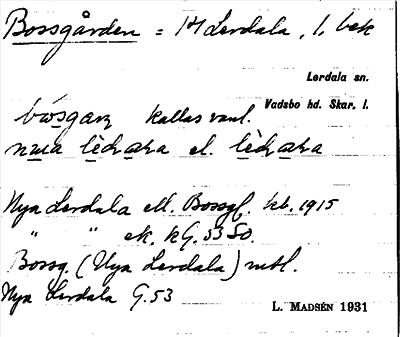 Bossgården = 1/4 Lerdala, l, bek
Lerdala sn.
Vadsbo hd. Skar. l.
kallas vanl.
el.
Nya Lerdala ell. Bossg. kb. 1915
" " ek. kG. 53 So.
Bossg. (Nya Lerdala) mtl.
Nya Lerdala G. 53
L. MADSÉN 1931